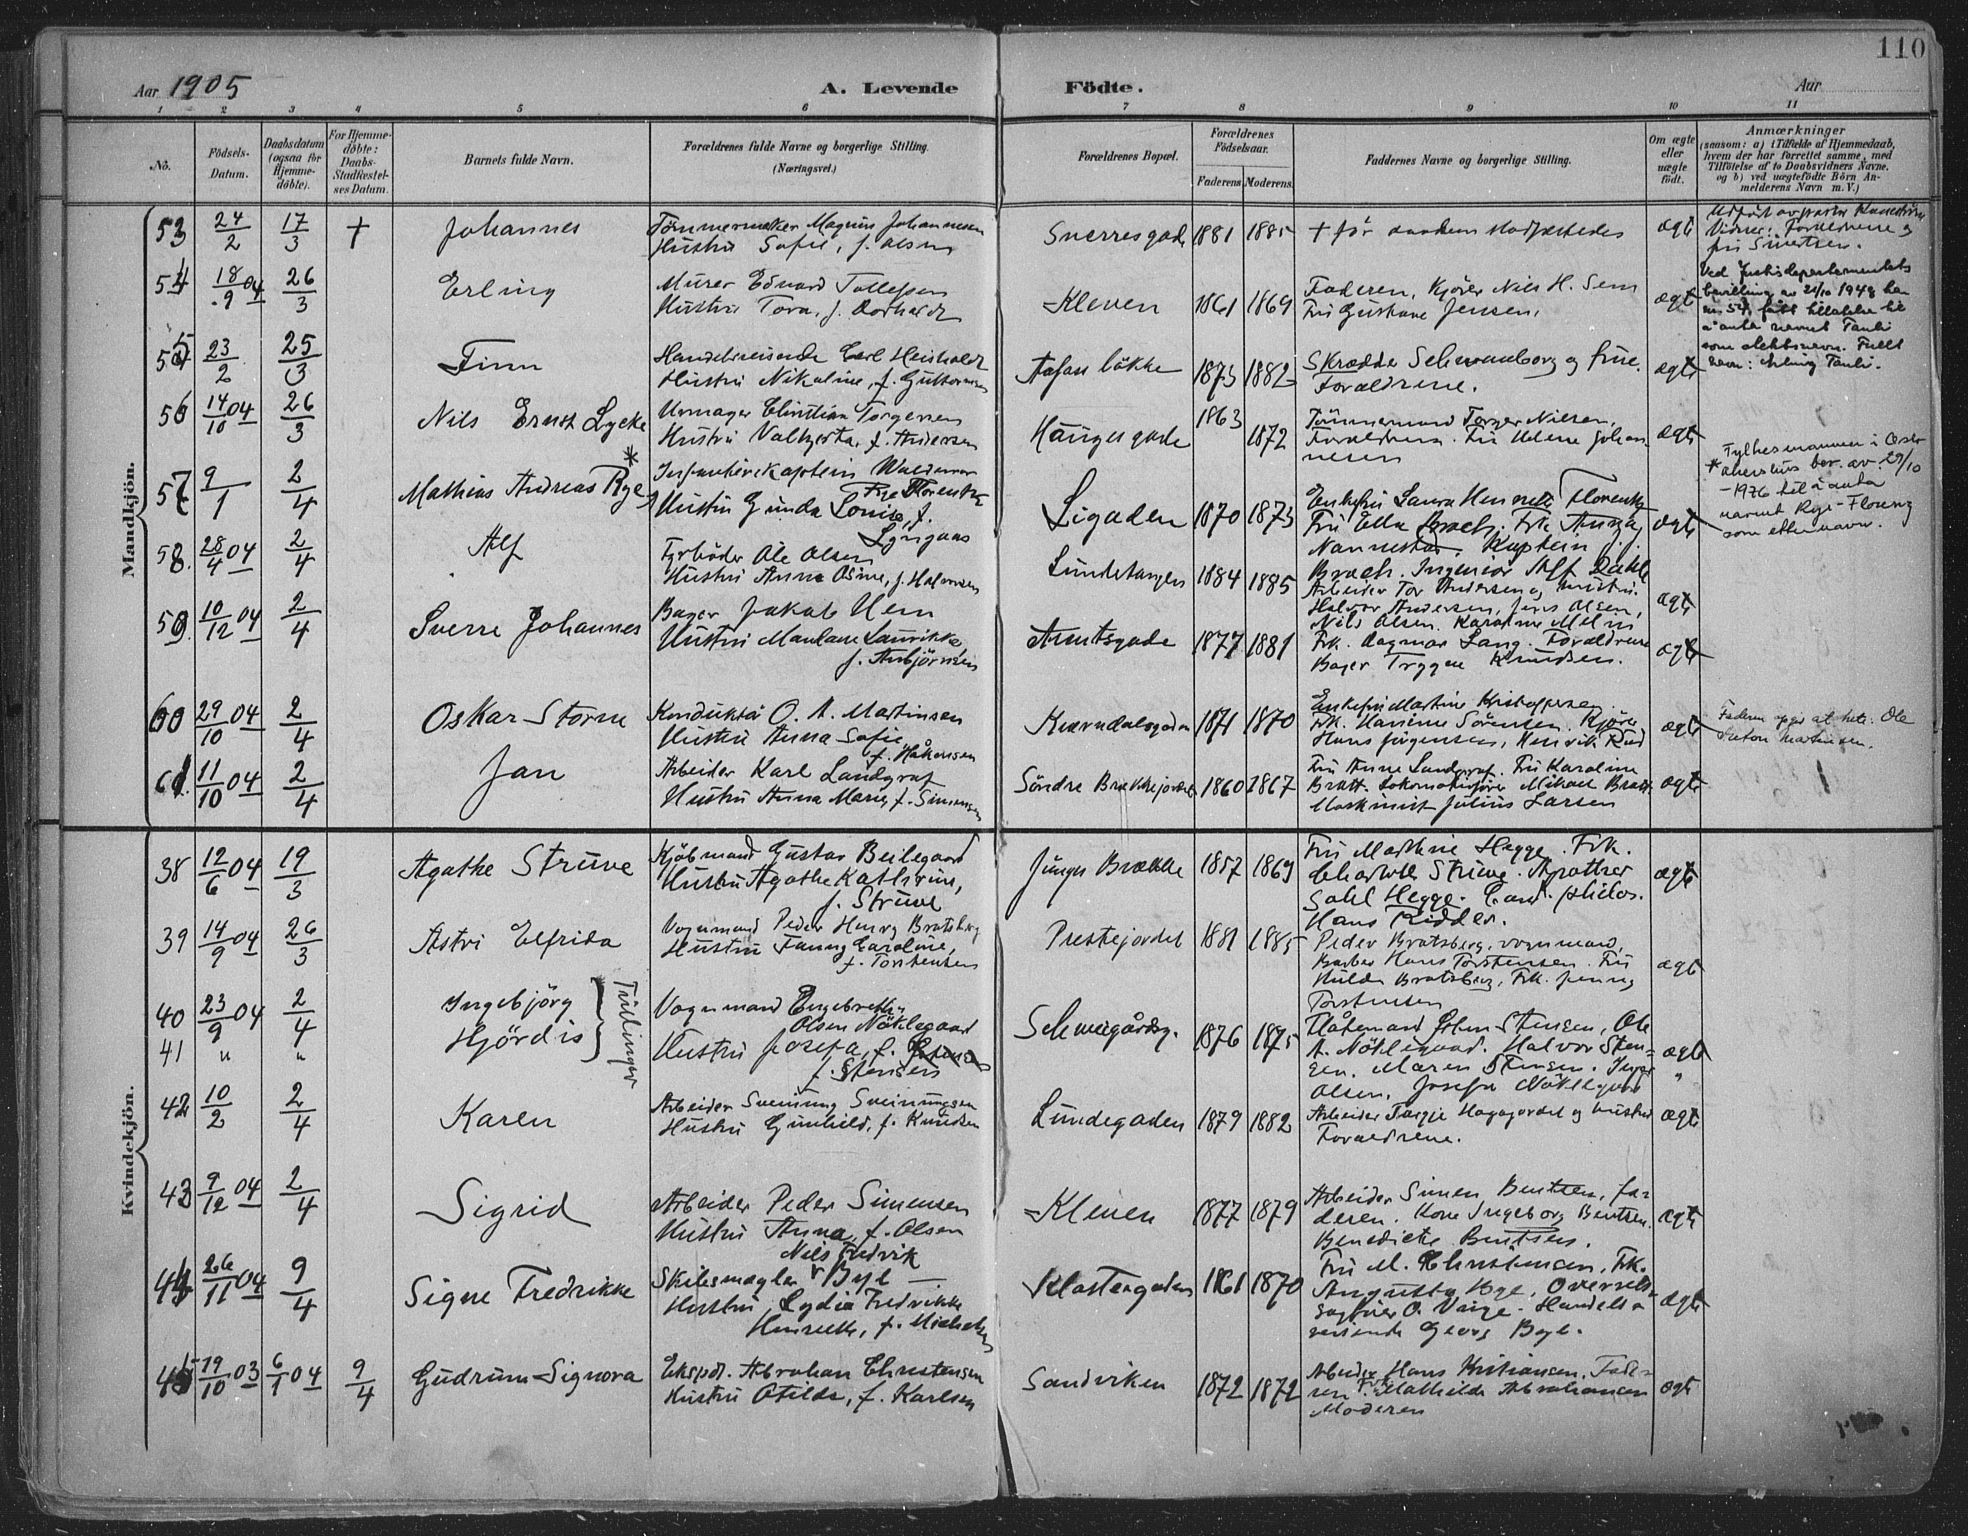 110
Aar 1905
A. Levende Födte.
Aar
1 2 3 4 5 6 7 8 9 10 11
No.
Födsels-Datum.
Daabsdatum (ogsaa for Hjemmedöbte).
For Hjemmedöbte: Daabs-Stadfæstelses Datum.
Barnets fulde Navn.
Forældrenes fulde Navne og borgerlige Stilling.
(Næringsvei.)
Forældrenes Bopæl.
Forældrenes Födselsaar.
Faderens. Moderens.
Faddernes Navne og borgerlige Stilling.
Om ægte eller uægte födt.
Anmærkninger
(saasom: a) i Tilfælde af Hjemmedaab, hvem der har forrettet samme, med Tilföielse af to Daabsvidners Navne. og b) ved uægtefödte Börn Anmelderens Navn m. V.)
Mandkjön.
53 24/2 17/3 + Johannes
Tömmermerker Magnus Johannesen
Hustru Sofie, f. Olsen
Sverresgade 1881 1885 + før daabens stadfæstedes ægte
54 18/9 04 26/3 Erling
Murer Edvard Tollefsen
Hustru Tora, f.
Kleven 1861 1869
Faderen, Kjører Nils H. Sem
Fru Gustava Jensen. ægte
Ved Justisdepartementets
bevilling av 21/10 1948 har
nr. 54 fått tillatelse til
å anta navnet Tauli
som slektsnavn. Fullt
navn: Erling Tauli.
55 23/2 25/3 Finn
Handelsreisende Carl
Hustru Nikoline, f. Guttormsen
løkke 1873 1882
Skrædder Schwanborg og frue.
Forældrene. ægte
56 14/10 04 26/3 Nils Ernst Lycke
Urmager Christian Torgersen
Hustru Valborg, f. Andersen
Haugesgade 1863 1872
Tömmermand Torger Nilsen.
Forældrene. Fru Helene Johannesen ægte
57 9/1 2/4 Mathias Andreas Rye *
Infanterikaptein Waldemar
Rye Florentz
Hustru Gunda Louise, f.
Lyngaas
Ligaden 1870 1873
Enkefru Laura Henriette Florentz
Fru Ella Brach. Frk. Anna
Nannestad. Kaptein
Brach. Ingeniør Alf Dahl ægte
Fylkesmannen i Oslo
* Akershus bev. av 29/10
-1926 til å anta
navnet Rye-Florentz
som etternavn.
58. 28/4 04 2/4 Alf
Fyrbøder Ole Olsen
Hustru Anna Osine, f. Halvorsen
Lundetangen 1884 1885
Arbeider Tor Andersen og hustru.
Halvor Andersen, Jens Olsen,
Nils Olsen. Karoline Melni ægte
59. 10/12 04 2/4 Sverre Johannes
Bager Jakob Hem
Hustru Maulane Laurikke
f. Anbjörnsen
Amtsgade 1877 1881
Frk. Dagmar Lang. Forældrene
Bager Trygve Knudsen. ægte
60 29/10 04 2/4 Oskar Storm
Konduktør O. A. Martinsen
Hustru Anna Sofie
f. Håkonsen
Kværndalsgaden 1871 1870
Enkefru Martine Kristoffersen.
Frk. Hanine Sørensen. Kjører
Hans Jørgensen, Henrik Rud ægte
Faderen opgir at hete: Ole
Anton Martinsen.
61. 11/10 04 2/4 Jan
Arbeider Karl Landgraf
Hustru Anna Marie, f. Simonsen
Söndre Brækkejordet 1860 1867
Fru Anne Landgraf. Fru Karoline
Bratt. Lokomotivfører Mikael Bratt
Maskinist Julius Larsen ægte
Kvindekjön.
38 12/6 04 19/3 Agathe Strüve
Kjöbmand Gustav Beilegaard
Hustru Agathe Kathrine,
f. Strüve
Brække 1857 1869
Fru Marthine Hegge. Frk.
Charlotte Strüve. Apotheker
Hegge. Cand. philos.
Hans Ridder. ægte
39 14/9 04 26/3 Astri Elfrida
Vognmand Peder Henry Bratsberg
Hustru Fanny Caroline,
f. Torstensen
Prestejordet 1881 1885
Peder Bratsberg, vognmand,
Barber Hans Torstensen. Fru
Hulda Bratsberg, Frk. Jenny
Torstensen ægte
40 23/9 04 2/4 Ingebjörg
41 " " Hjördis
Tvillinger
Vognmand Engebreth
Olsen Nöklegaard
Hustru Josefa, f.
f. Stensen
Schweigårdsg. 1876 1875
Flåtemand John Stensen, Ole
A. Nöklegaard. Halvor Stensen.
Maren Stensen. Inger
Olsen. Josefa Nöklegaard ægte "
42 10/2 2/4 Karen
Arbeider Sveinung Sveinungsen
Hustru Gunhild, f. Knudsen
Lundegaden 1879 1882
Arbeider Torgje Hagajordet og hustru
Forældrene. ægte
43 9/12 04 2/4 Sigrid
Arbeider Peder Simonsen
Hustru Anna, f. Olsen
Kleven 1877 1879
Arbeider Simen Bentsen, faderen.
Kone Ingeborg Bentsen.
Benedicte Bentsen. ægte
44 26/11 04 9/4 Signe Fredrikke
Nils Fredrik
Skibsmægler Bye
Hustru Lydia Fredrikke
Henriette, f. Michelsen
Klostergaden 1861 1870
Fru M. Christensen, Frk.
Augusta Bye, Overretssagfører
O. Vinje. Handelsreisende
Georg Bye. ægte
45 19/10 03 6/1 04 9/4 Gudrun Signora
Ekspd. Abrahan Christensen
Hustru Otilde, f. Karlsen
Sandviken 1872 1872
Arbeider Hans Kristiansen, Faderen
Frk. Mathilde Abrahamsen
Moderen ægte